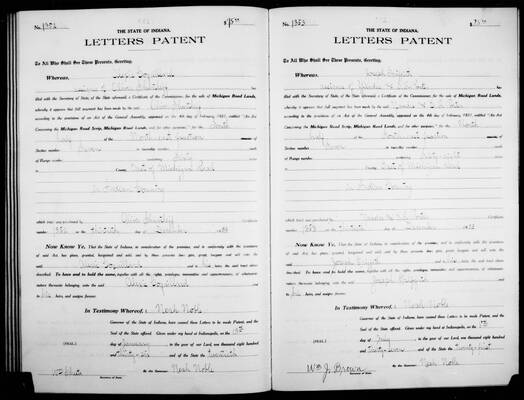 No. 1352 $75.00
THE STATE OF INDIANA.
LETTERS PATENT
To All Who Shall See These Presents, Greeting:
Whereas,
assignee of
filed with the Secretary of State, of the State aforesaid a Certificate of the Commissioner, for the sale of Michigan Road Lands,
whereby it appears that full payment has been made by the said
according to the provisions of an Act of the General Assembly, approved on the 4th day of February, 1831, entitled "An Act
Concerning the Michigan Road Scrip, Michigan Road Lands, and for other purposes," for the North
half of the Northeast fraction of
Section number Seven in township number
of Range number containing Sixty
East of Michigan Road
in Indian Country
which tract was purchased by Certificate
number 1352 on the thirtieth day of December 18
Now Know Ye, That the State of Indiana, in consideration of the premises, and in conformity with the provisions
of said Act, has given, granted, bargained and sold, and by these presents does give, grant, bargain and sell unto the
said and to his heirs, the said tract above
described. To have and to hold the same, together with all the rights, privileges, immunities and appurtenances, of whatsoever
nature thereunto belonging, unto the said and
to his heirs, and assigns forever.
In Testimony Whereof, I Noah Noble
Governor of the State of Indiana, have caused these Letters to be made Patent, and the
Seal of the State affixed. Given under my hand at Indianapolis, on the
(SEAL) day of January in the year of our Lord, one thousand eight hundred
and thirty-six and of the State the twentieth
By the Governor: Noah Noble
Secretary of State.
No. 1353 $75.00
THE STATE OF INDIANA.
LETTERS PATENT
To All Who Shall See These Presents, Greeting:
Whereas, Joseph Griffith
assignee of
filed with the Secretary of State, of the State aforesaid a Certificate of the Commissioner, for the sale of Michigan Road Lands,
whereby it appears that full payment has been made by the said
according to the provisions of an Act of the General Assembly, approved on the 4th day of February, 1831, entitled "An Act
Concerning the Michigan Road Scrip, Michigan Road Lands, and for other purposes," for the North
half of the Northwest fraction of
Section number Seven in township number
of Range number containing Sixty-eight
East of Michigan Road
in Indian Country
which tract was purchased by Certificate
number 1353 on the thirtieth day of December 18
Now Know Ye, That the State of Indiana, in consideration of the premises, and in conformity with the provisions
of said Act, has given, granted, bargained and sold, and by these presents does give, grant, bargain and sell unto the
said Joseph Griffith and to his heirs, the said tract above
described. To have and to hold the same, together with all the rights, privileges, immunities and appurtenances, of whatsoever
nature thereunto belonging, unto the said Joseph Griffith and
to his heirs, and assigns forever.
In Testimony Whereof, I Noah Noble
Governor of the State of Indiana, have caused these Letters to be made Patent, and the
Seal of the State affixed. Given under my hand at Indianapolis, on the
(SEAL) day of May in the year of our Lord, one thousand eight hundred
and thirty-seven and of the State the twenty-first
Wm. J. Brown By the Governor: Noah Noble
Secretary of State.